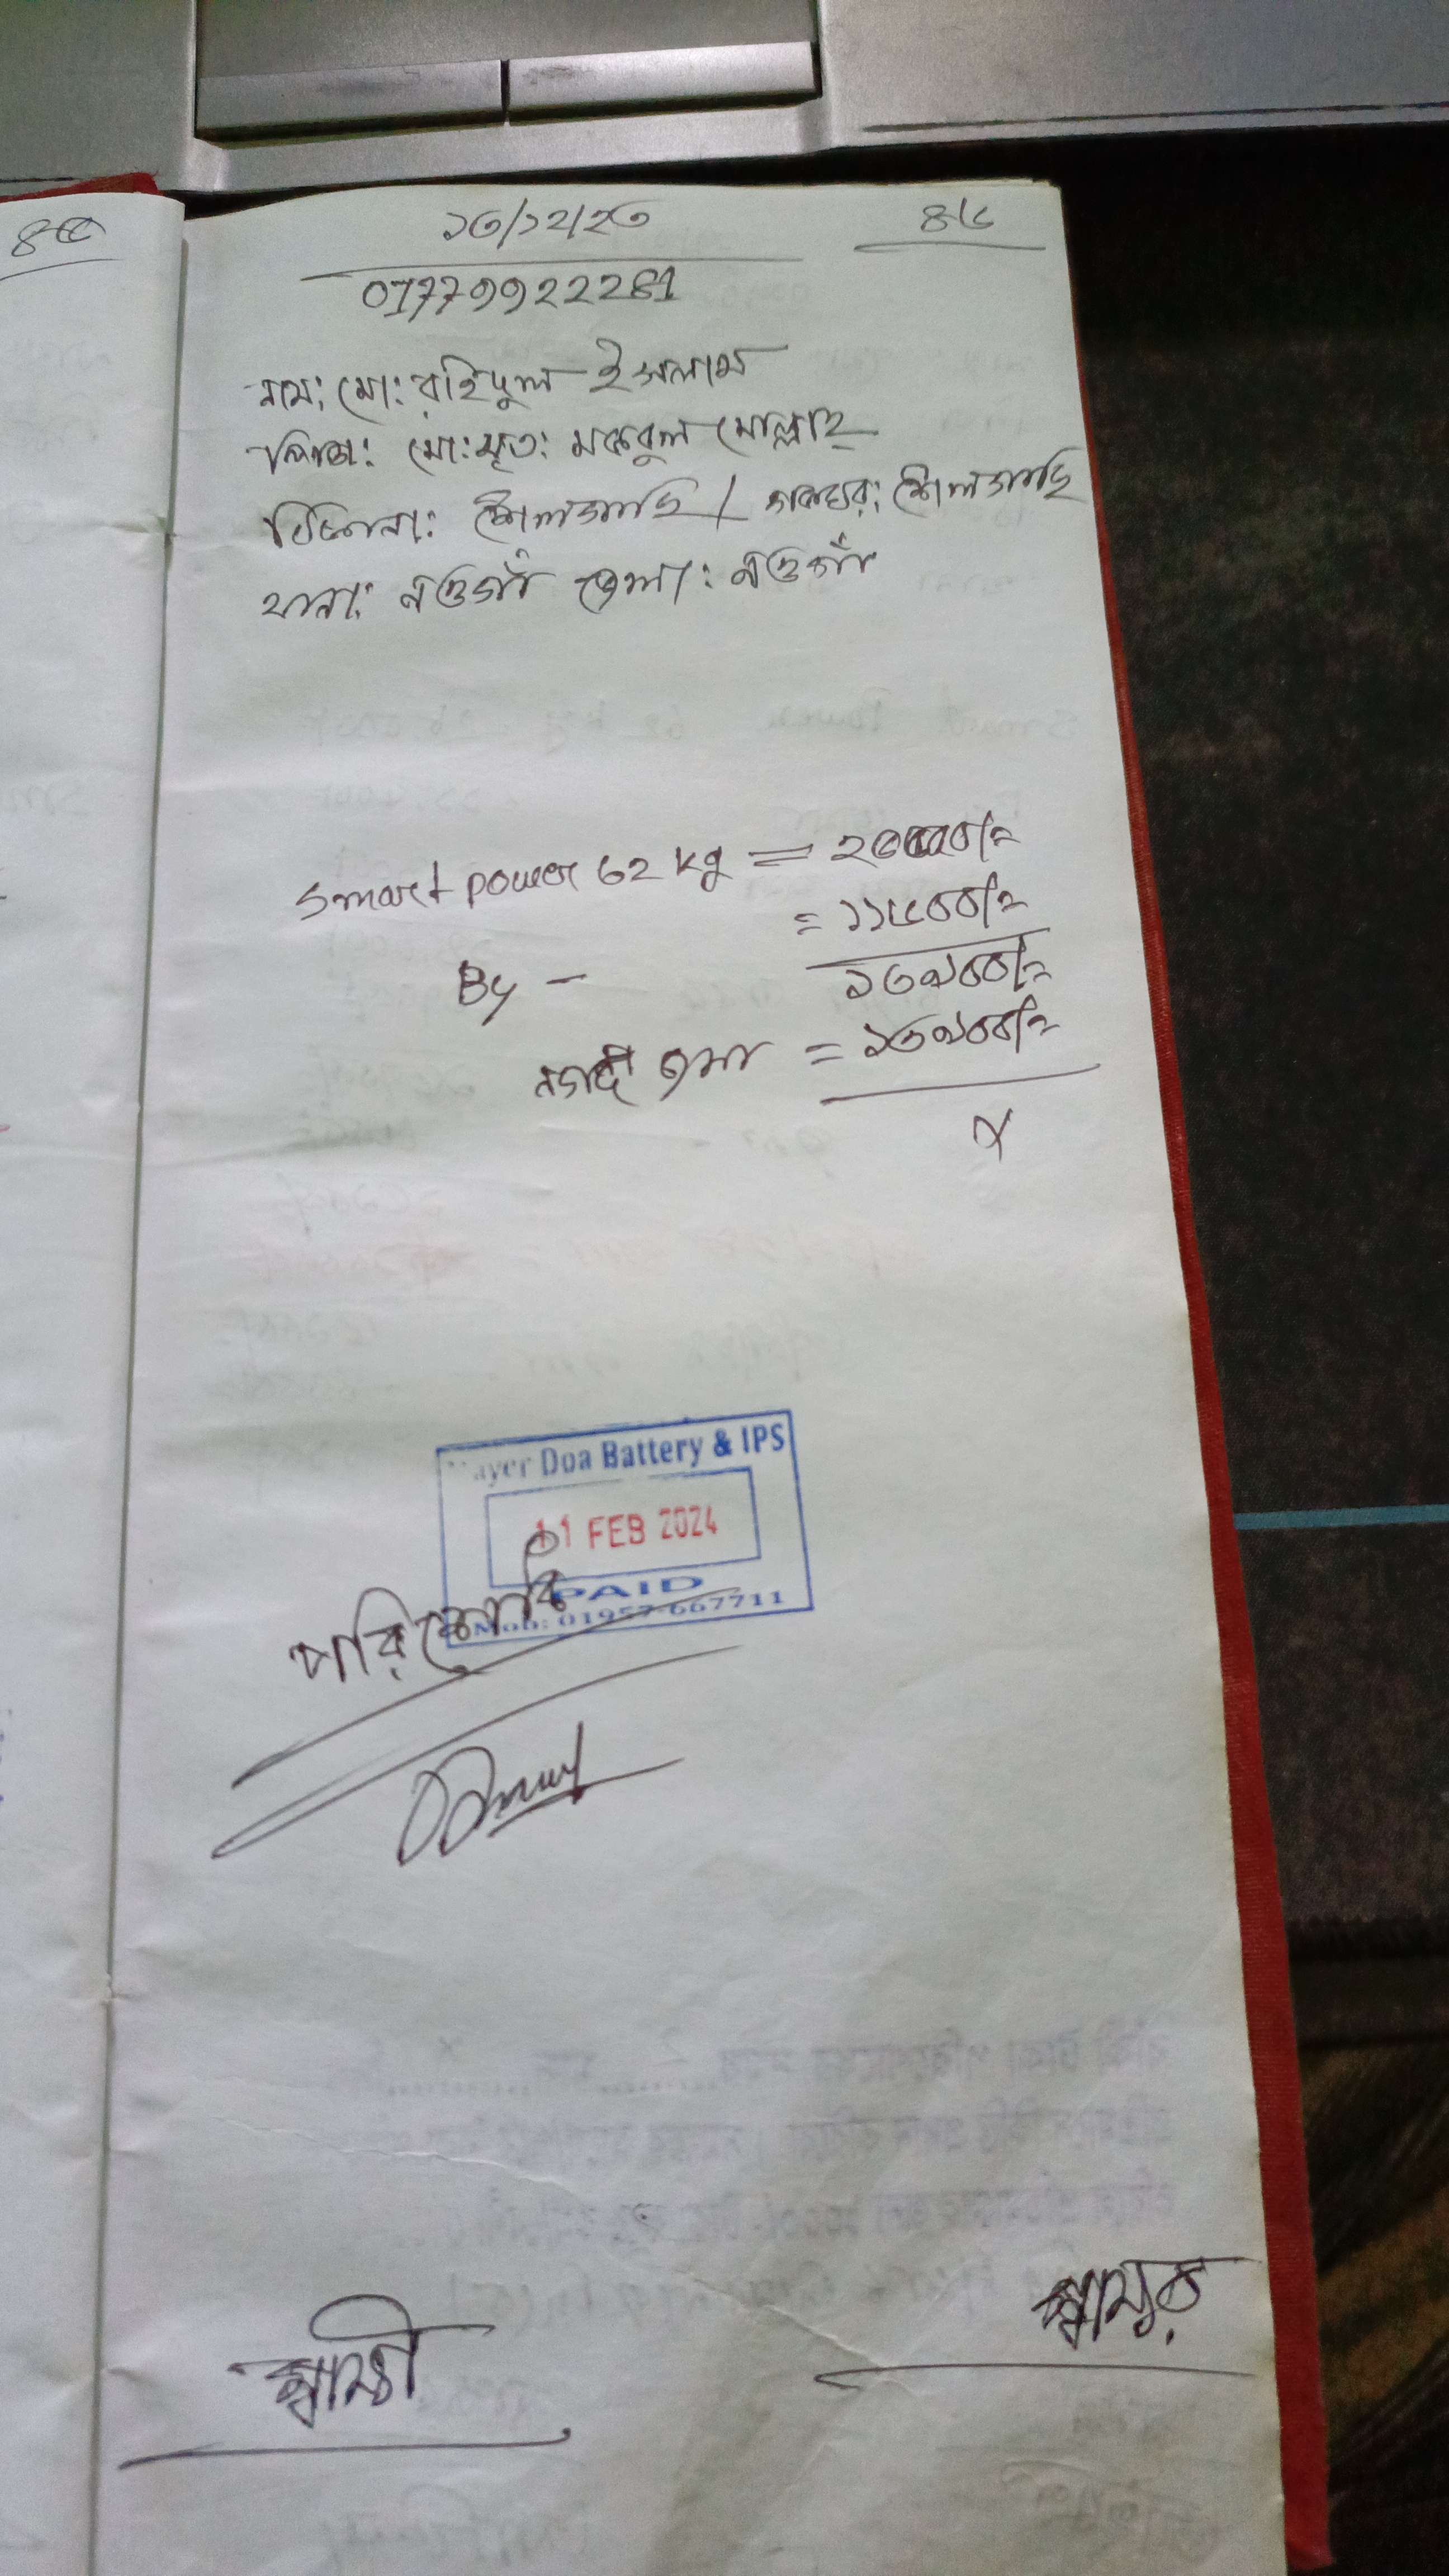 ৪৫
১৩/১২/২৩
৪৬
01779922281
নাম: মো: রহিদুল ইসলাম
পিতা: মো: মৃত: মকবুল মোল্লাহ
ঠিকানা: শৈলগাছি / ডাকঘর: শৈলগাছি
থানা: নওগাঁ জেলা: নওগাঁ
Smart power 62 kg =
= ১১৬০০/=
By - ১৩৯০০/=
নগদ জমা = ১৩৯০০/=
Mayer Doa Battery & IPS
11 FEB 2024
PAID
Mob: 01957-667711
পরিশোধ
স্বাক্ষর
স্বাক্ষী